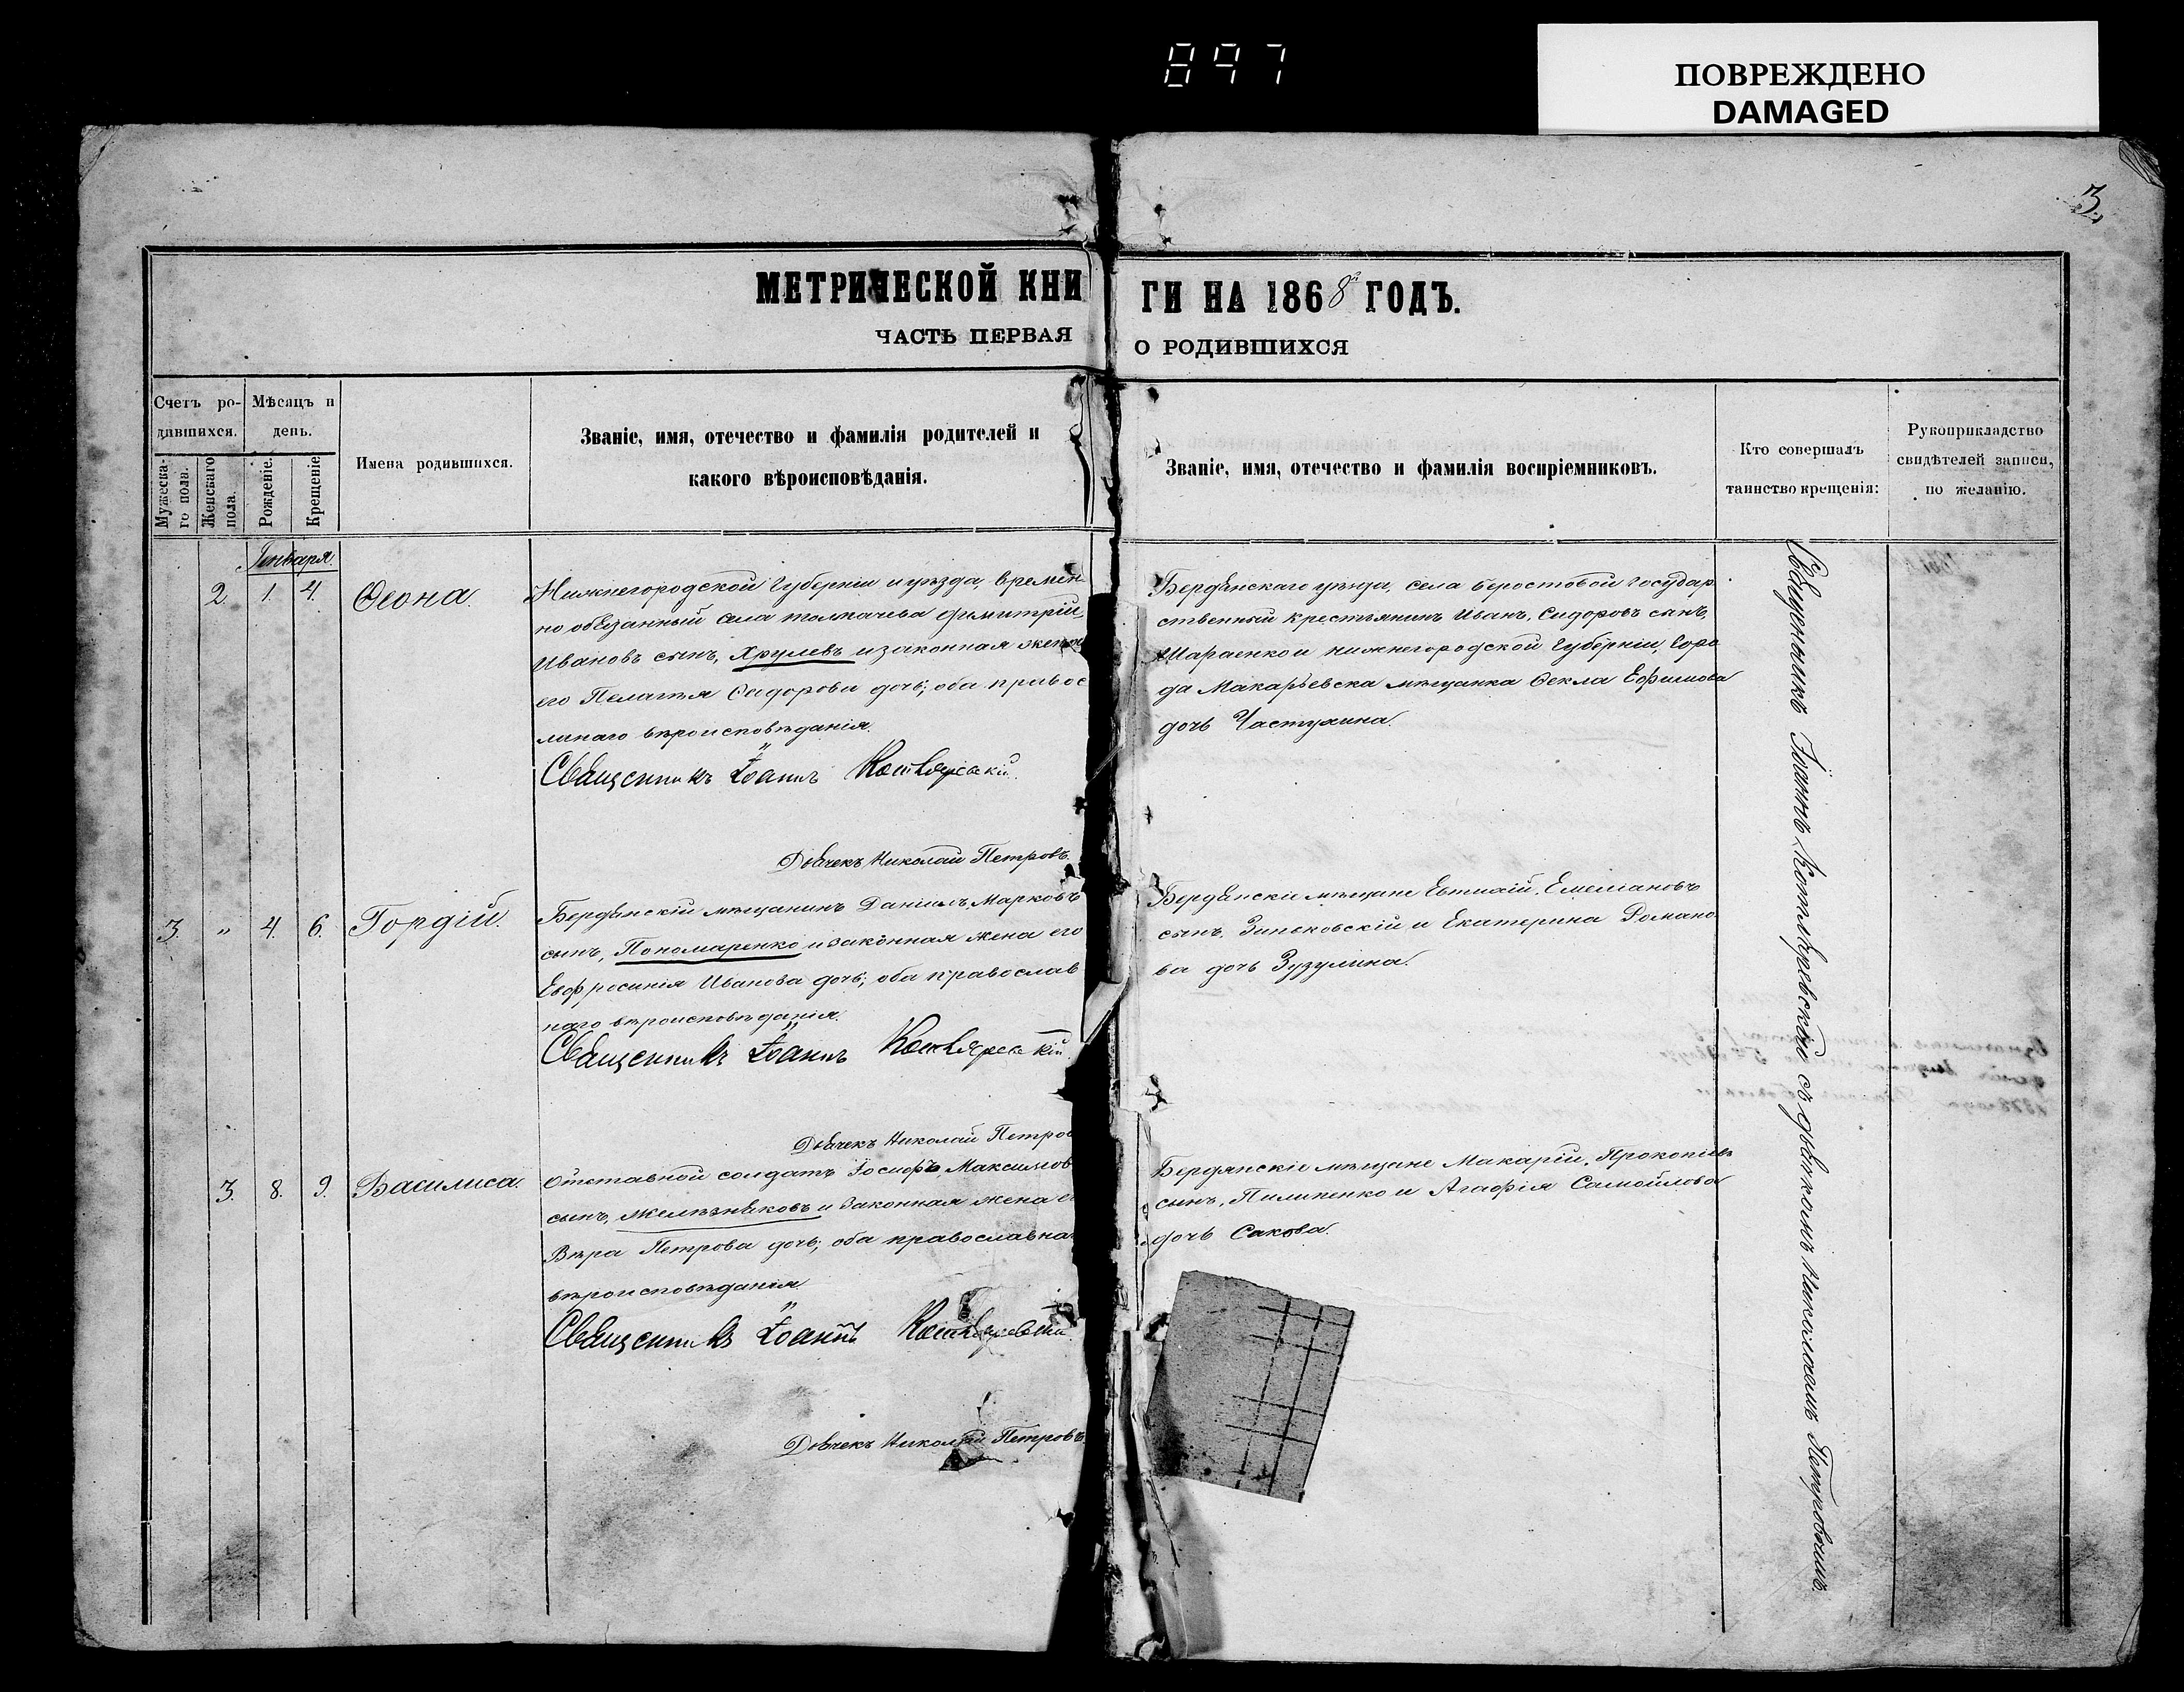 897
ПОВРЕЖДЕНО
DAMAGED
3.
МЕТРИЧЕСКОЙ КНИ
ГИ НА 1868 ГОДЪ.
ЧАСТЬ ПЕРВАЯ
О РОДИВШИХСЯ
Счетъ ро-
дившихся.
Мѣсяцъ и
день.
Мужеска-
го пола.
Женскаго
пола.
Рожденіе.
Крещеніе.
Имена родившихся.
Званіе, имя, отечество и фамилія родителей и
какого вѣроисповѣданія.
Званіе, имя, отечество и фамилія воспріемниковъ.
Кто совершалъ
таинство крещенія:
Рукоприкладство
свидѣтелей записи,
по желанію.
Января.
2. 1. 4. Ѳеона.
Нижнегородской Губерніи и уѣзда, времен
но обязанный села Толмачева Димитрій
Ивановъ сынъ, Хрулевъ и законная жена
его Пелагѣя Сидорова дочь; оба правос
лвнаго вѣроисповѣданія.
Священникъ Іоаннъ Котляревскій.
Дьячекъ Николай Петровъ.
Бердянскаго уѣзда, села Берестовой государ
ственный крестьянинъ Иванъ, Сидоровъ сынъ,
и нижнегородской Губерніи, Горо
да Макарьевска мѣщанка Ѳекла Ефимова
дочь Частухина.
3. " 4. 6. Гордій.
Бердянскій мѣщанинъ Даніилъ, Марковъ
сынъ, Пономаренко и законная жена его
Евфросинія Иванова дочь; оба православ
наго вѣроисповѣданія.
Священникъ Іоаннъ Котляревскій.
Дьячекъ Николай Петров
Бердянскіе мѣщане Евтихій, Емеліановъ
сынъ, Зиньковскій и Екатерина Романо
ва дочь Зузулина.
3. 8. 9. Василиса.
Отставной солдатъ Іосифъ Максимов
сынъ, Желѣзняковъ и законная жена е
Вѣра Петрова дочь; оба православна
вѣроисповѣданія.
Священникъ Іоаннъ Котляревскій.
Дьячекъ Николай Петровъ.
Бердянскіе мѣщане Макарій, Прокопіевъ
сынъ, Пилипенко и Агафія Самойлова
дочь Сакова.
Священникъ Іоаннъ Котляревскій съ дьячкомъ Николаемъ Петровымъ.